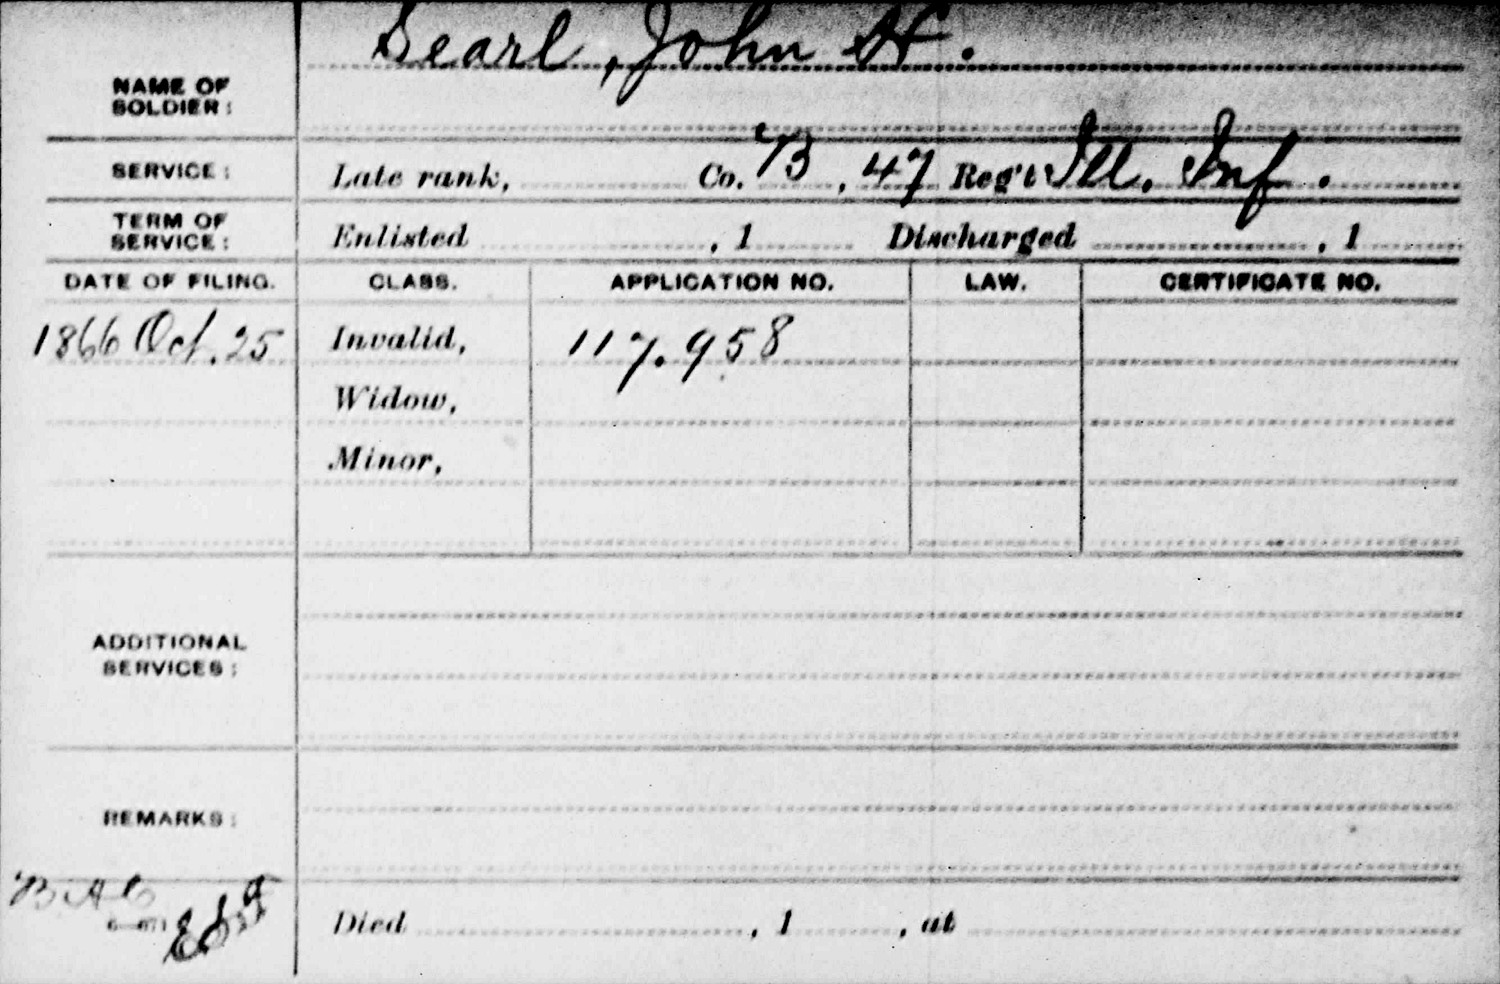 Searl, John H.
NAME OF
SOLDIER:
SERVICE: Late rank, Co. B, 47 Reg't Ill. Inf.
TERM OF
SERVICE: Enlisted , 1 Discharged , 1
DATE OF FILING. CLASS. APPLICATION NO. LAW. CERTIFICATE NO.
1866 Oct. 25 Invalid, 117.958
Widow,
Minor,
ADDITIONAL
SERVICES:
REMARKS:
BAC
Died , 1 , at